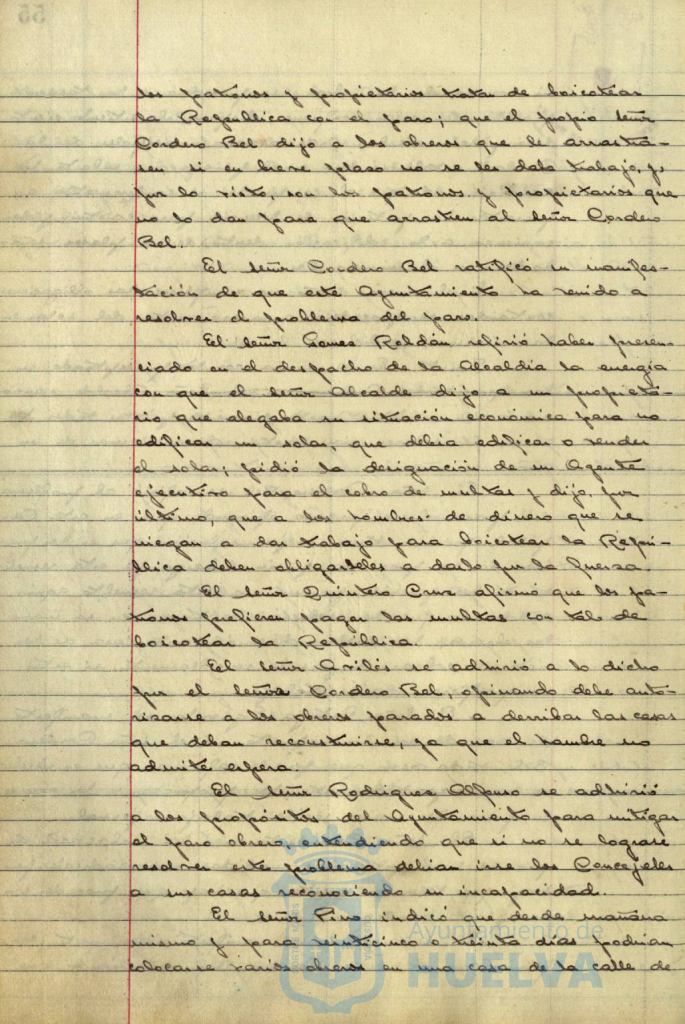 los patonos y propietarios tratan de boicotear
la Republica con el paro; que el propio señor
Cordero Bel dijo a los obreros que le arrastra-
sen si en breve plaso no se les daba trabajo, y,
por lo visto, son los patonos y propietarios que
no lo dan para que arrastren al señor Cordero
Bel.
El señor Cordero Bel ratificó su manifes-
tación de que este Ayuntamiento ha venido a
resolver el problema del paro.
El señor Gomez Roldán refirió haber presen-
ciado en el despacho de la Alcaldía la energía
con que el señor Alcalde dijo a un propieta-
rio que alegaba su situación económica para no
edificar un solar, que debía edificar o vender
el solar; pidió la designación de un Agente
ejecutivo para el cobro de multas y dijo, por
último, que a los hombres de dinero que se
niegan a dar trabajo para boicotear la Repú-
blica deben obligárseles a darlo por la fuerza.
El señor Quintero Cruz afirmó que los pa-
tonos prefieren pagar las multas con tal de
boicotear la República.
El señor Avilés se adhirió a lo dicho
por el señor Cordero Bel, opinando debe auto-
rizarse a los obreros parados a derribar las casas
que deban reconstruirse, ya que el hambre no
admite espera.
El señor Rodriguez Alfonso se adhirió
a los propósitos del Ayuntamiento para mitigar
el paro obrero, entendiendo que si no se lograse
resolver este problema debian irse los Concejales
a sus casas reconociendo su incapacidad.
El señor Pino indicó que desde mañana
mismo y para veinticinco o treinta días podrian
colocarse varios obreros en una casa de la calle de
Ayuntamiento de
HUELVA